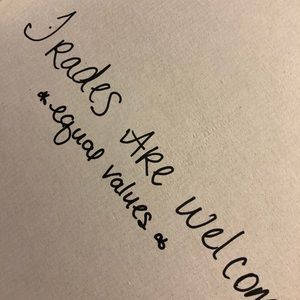 Trades Are Welcom
*equal values*